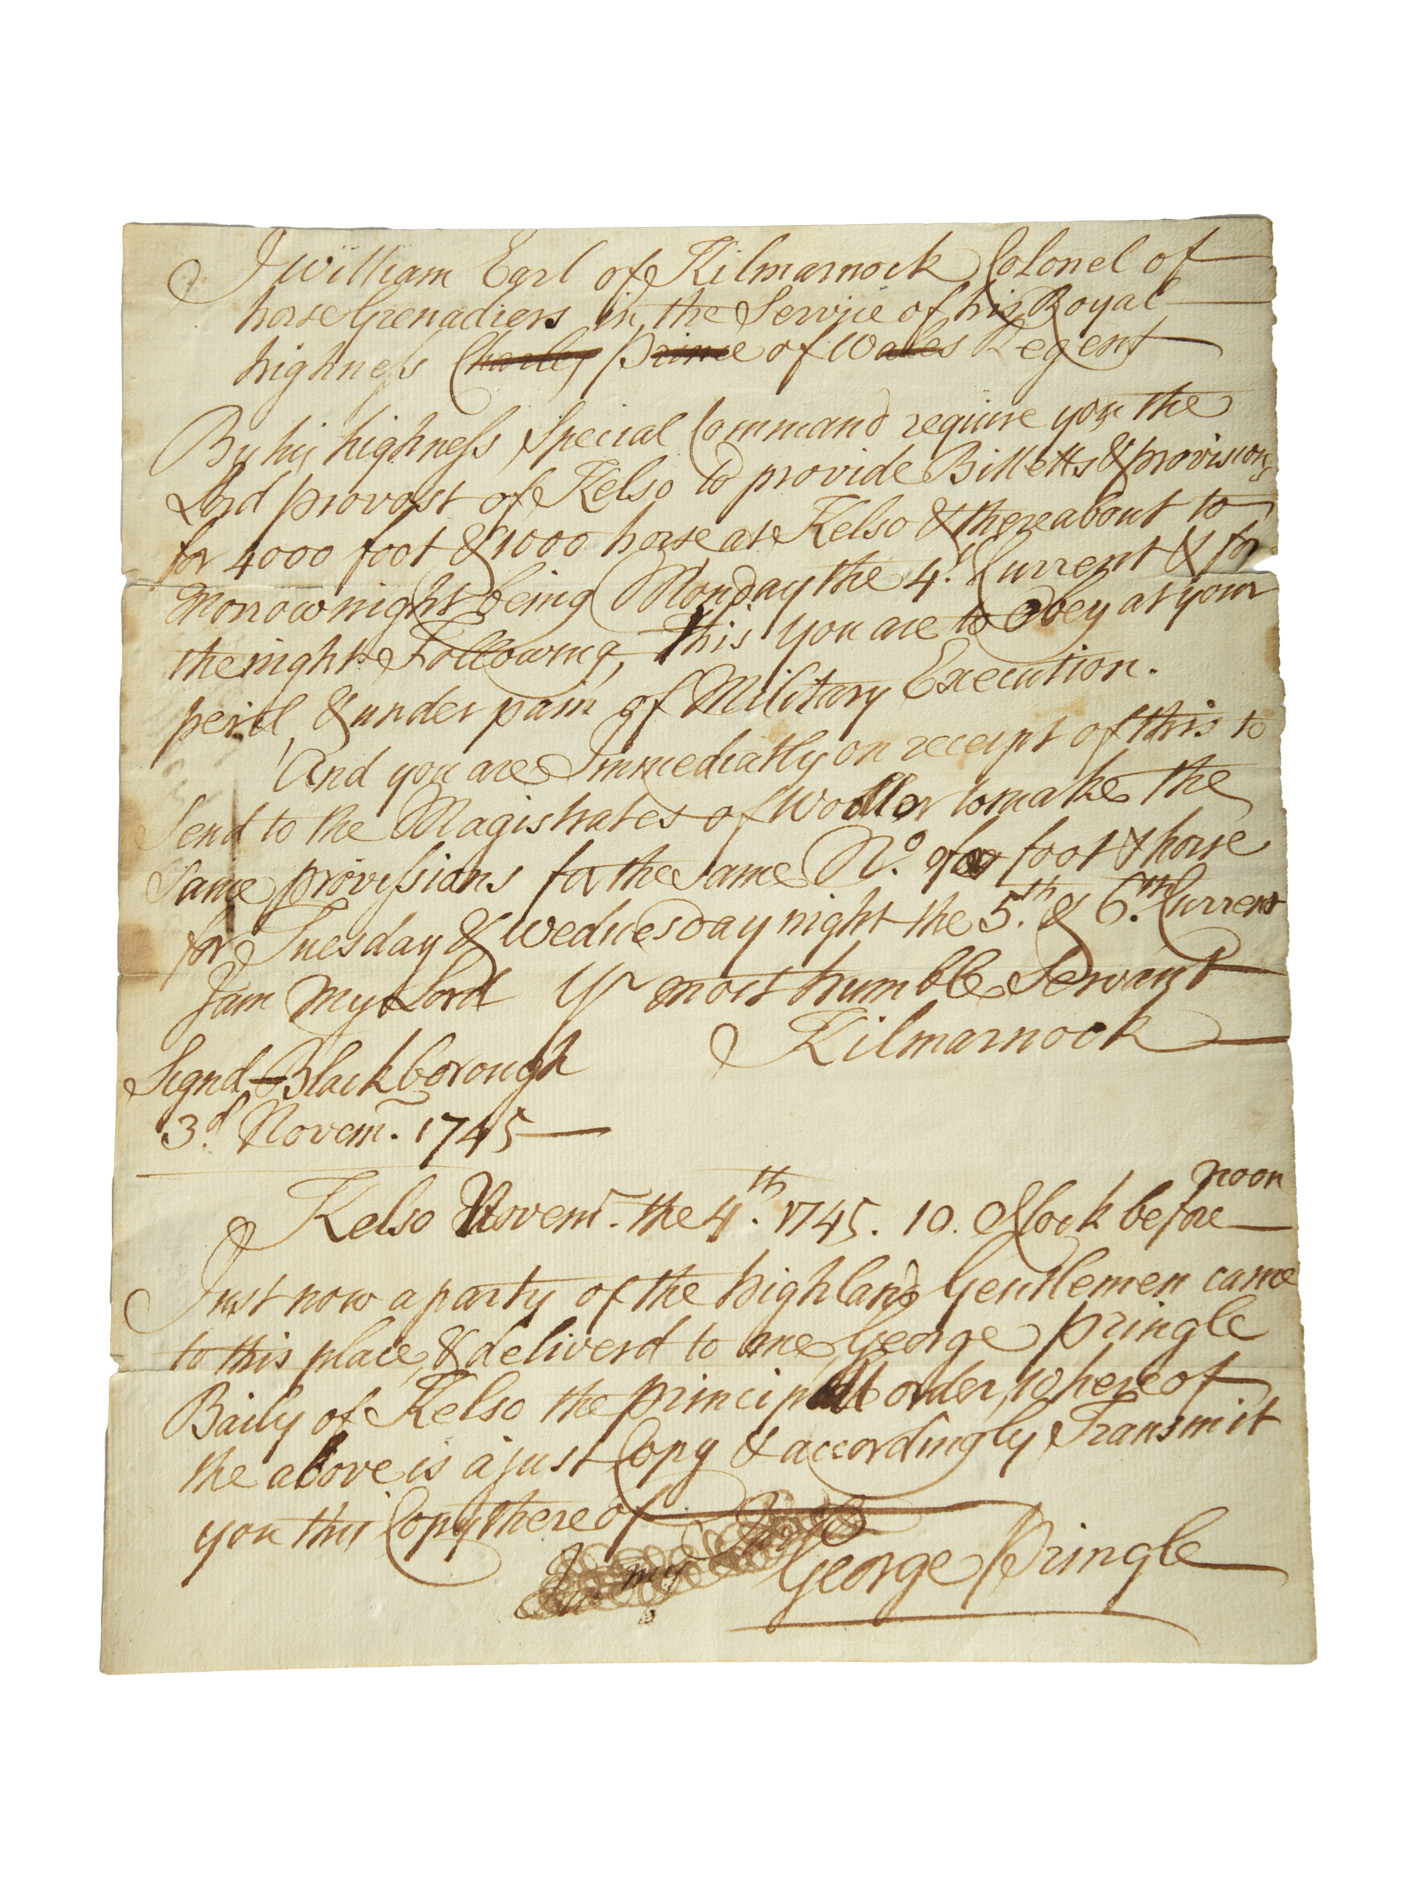 I William Earl of Kilmarnock Colonel of
horse Grenadiers in the Service of his Royal
highness Charles Prince of Wales Regent
By his highness Special Command require you the
Lord provost of Kelso to provide Billetts & provisions
for 4000 foot & 1000 horse at Kelso & thereabout to
Morrow night being Monday the 4t. Current & for
the night Following, This you are to Obey at your
peril, & under pain of Military Execution.
And you are Immediatly on receipt of this to
Send to the Magistrates of Wooller to make the
Same provissions for the same No. of foot & horse
for Tuesday & Wednesday night the 5th. & 6th. Current
I am My Lord Yr most humble Servant
Kilmarnock
Signd Blackborough
3d. Novem. 1745
Kelso Novemr. the 4th. 1745. 10. Oclock before noon
Just now a party of the highland Gentlemen came
to this place, & deliverd to me George Pringle
Baily of Kelso the principall order, whereof
the above is a just Copy & accordingly Transmit
you this Copy thereof
George Pringle